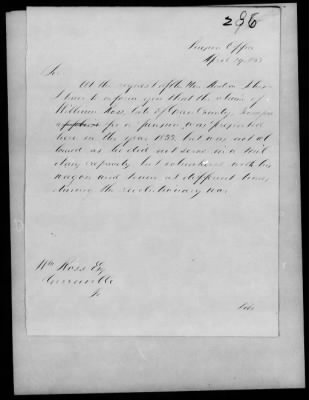 296
Pension Office
April 19, 185
Sir
At the request of the Hon.
I have to inform you that the claim of
William Ross, late of County,
for a pension was presented
here in the year 1833, but was not al
lowed as he did not serve in a mil
itary capacity but volunteered with his
wagon and team at different times
during the revolutionary war
Wm Ross Esq
Greenville